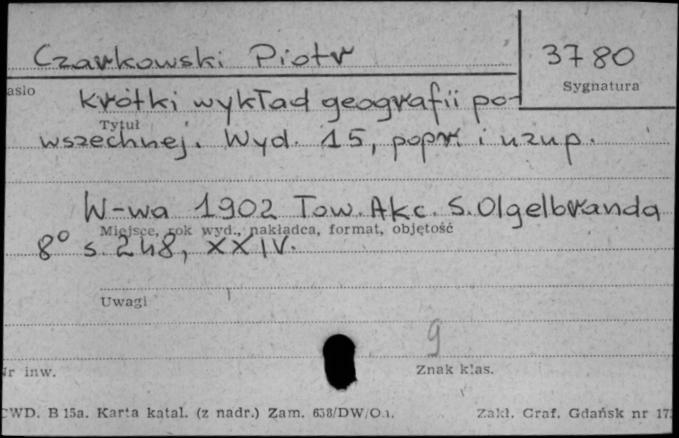 Czarkowski Piotr
3780
Sygnatura
asło
Krótki wykład geografii po-
Tytuł
wszechnej. Wyd. 15, popr. i uzup.
W-wa 1902 Tow. Akc. S. Olgelbranda
Miejsce, rok wyd., nakładca, format, objętość
8° s. 248, XXIV.
Uwagi
9
Nr inw.
Znak klas.
CWD. B 15a. Karta katal. (z nadr.) Zam. 638/DW/O
Zakł. Graf. Gdańsk nr 17